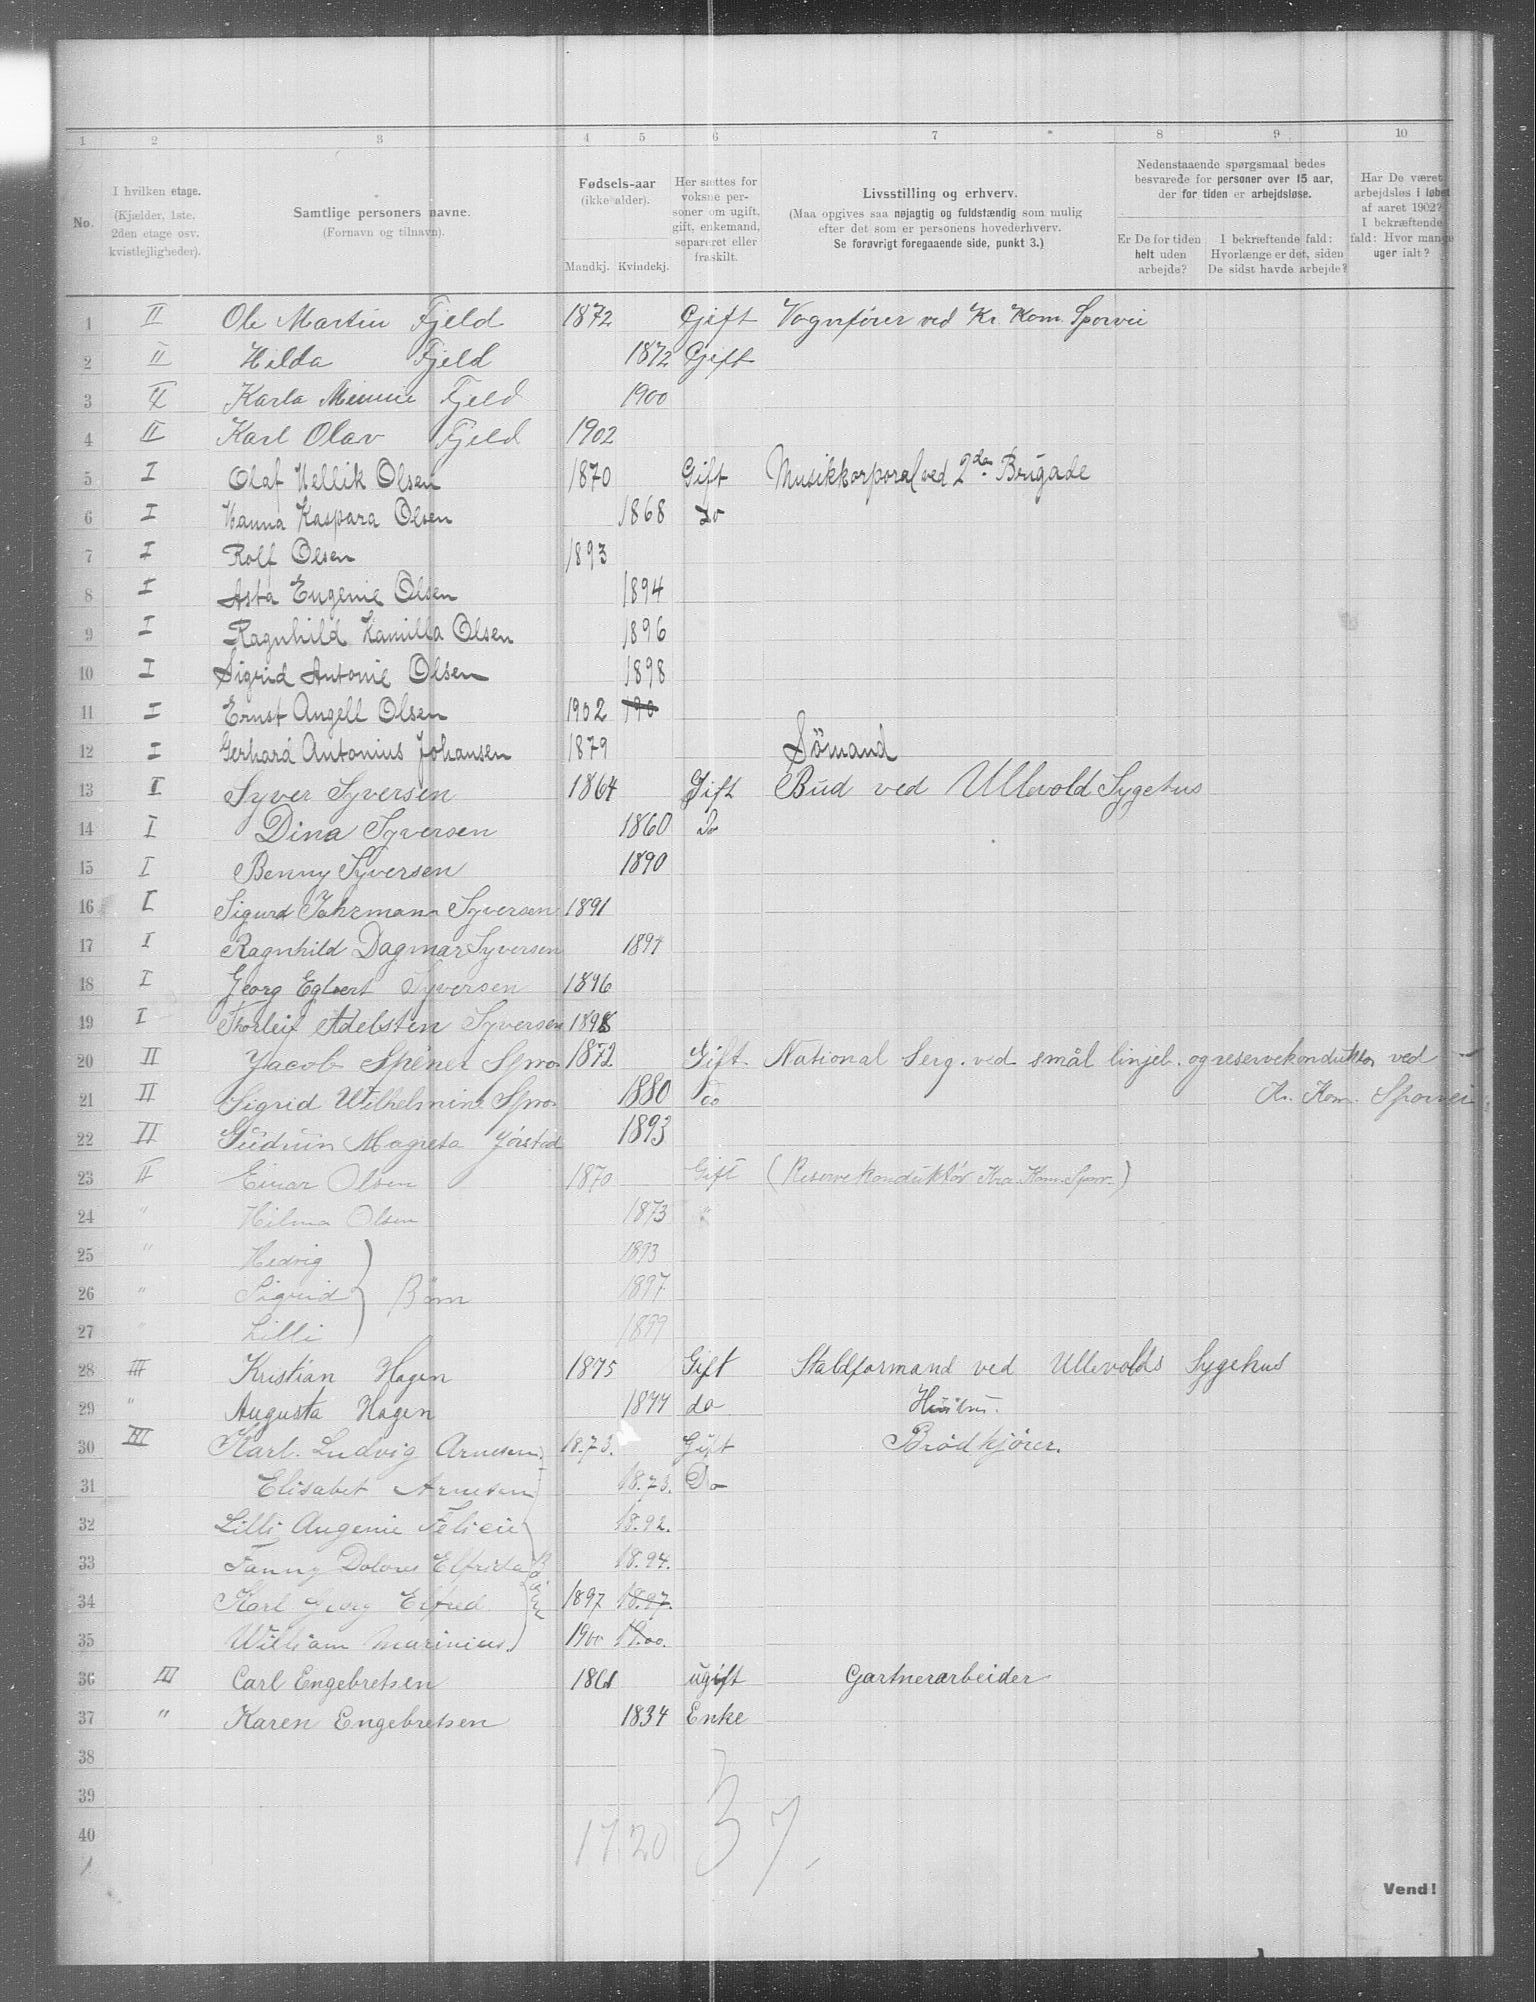 1 2 3 4 5 6 7 8 9 10
No.
I hvilken etage.
(Kjælder, 1ste,
2den etage osv.
kvistlejligheder).
Samtlige personers navne.
(Fornavn og tilnavn).
Fødsels-aar
(ikke alder).
Mandkj. Kvindekj.
Her sættes for
voksne per-
soner om ugift,
gift, enkemand,
separeret eller
fraskilt.
Livsstilling og erhverv.
(Maa opgives saa nøjagtig og fuldstændig som mulig
efter det som er personens hovederhverv.
Se forøvrigt foregaaende side, punkt 3.)
Nedenstaaende spørgsmaal bedes
besvarede for personer over 15 aar,
der for tiden er arbejdsløse.
Er De for tiden
helt uden
arbejde?
I bekræftende fald:
Hvorlænge er det, siden
De sidst havde arbejde?
Har De været
arbejdsløs i løbet
af aaret 1902?
I bekræftende
fald: Hvor mange
uger ialt?
1 II Ole Martin Fjeld 1872 Gjift Vognfører ved Kr. Kom. Sporvei
2 II Hilda Fjeld 1872 Gjift
3 II Karla Minnie Fjeld 1900
4 II Karl Olav Fjeld 1902
5 I Olaf Hellik Olsen 1870 Gift Musikkorporal ved 2den Brigade
6 I Hanna Kaspara Olsen 1868 Do
7 I Rolf Olsen 1893
8 I Asta Eugenie Olsen 1894
9 I Ragnhild Kamilla Olsen 1896
10 I Sigrid Antonie Olsen 1898
11 I Ernst Angell Olsen 1902 190
12 I Gerhard Antonius Johansen 1879 Sömand
13 I Syver Syversen 1864 Gift Bud ved Ullevold Sygehus
14 I Dina Syversen 1860 Do
15 I Benny Syversen 1890
16 I Sigurd Syversen 1891
17 I Ragnhild Dagmar Syversen 1894
18 I Georg Egbert Syversen 1896
19 I Thorleif Adelsten Syversen 1898
20 II Jacob Spro 1872 Gift. National Serg. ved smål linjeb. og reservekonduktør ved
21 II Sigrid Wilhelmine Spro 1880 Do Kr. Kom. Sporvei
22 II Gudrun Magreta Jørstad 1893
23 II Einar Olsen 1870 Gift (Reservekonduktör Kra Kom. Sporv.)
24 " Hilma Olsen 1873 "
25 " Hedvig 1893
26 " Sigrid } Börn 1897
27 " Lilli 1899
28 III Kristian Hagen 1875 Gift Staldformand ved Ullevolds Sygehus
29 " Augusta Hagen 1877 do Hüstru.
30 III Karl. Ludvig Arnesen. 18.73. Gift Brödkjører.
31 Elisabet Arnesen 18.73. Do
32 Lilli Augenie Felicie 18.92.
33 Fanny Dolores Elfrida 18.94.
34 Karl Georg Elfred 1897 18.97.
35 William Marinius. 1900 19.00.
36 III Carl Engebretsen 1861 ugift Gartnerarbeider
37 " Karen Engebretsen 1834 Enke
38
39
40
17 20 37
Vend!